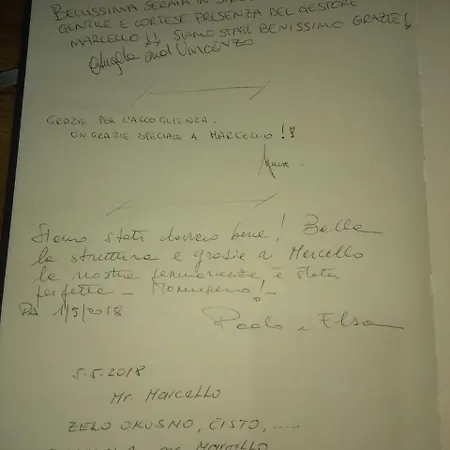 BELLISSIMA SERATA IN
GENTILE E CORTESE PRESENZA DEL GESTORE
MARCELLO!! SIAMO STATI BENISSIMO GRAZIE!
Angela and Vincenzo
GRAZIE PER L'ACCOGLIENZA.
UN GRAZIE SPECIALE A MARCELLO!!
Siamo stati davvero bene! Bella
la struttura e grazie a Marcello
la nostra permanenza è stata
perfetta - Torneremo! -
1/5/2018
Paolo e Elsa
5.5.2018
Mr. Marcello
ZELO OKUSNO, ČISTO, ....
MARCELLO